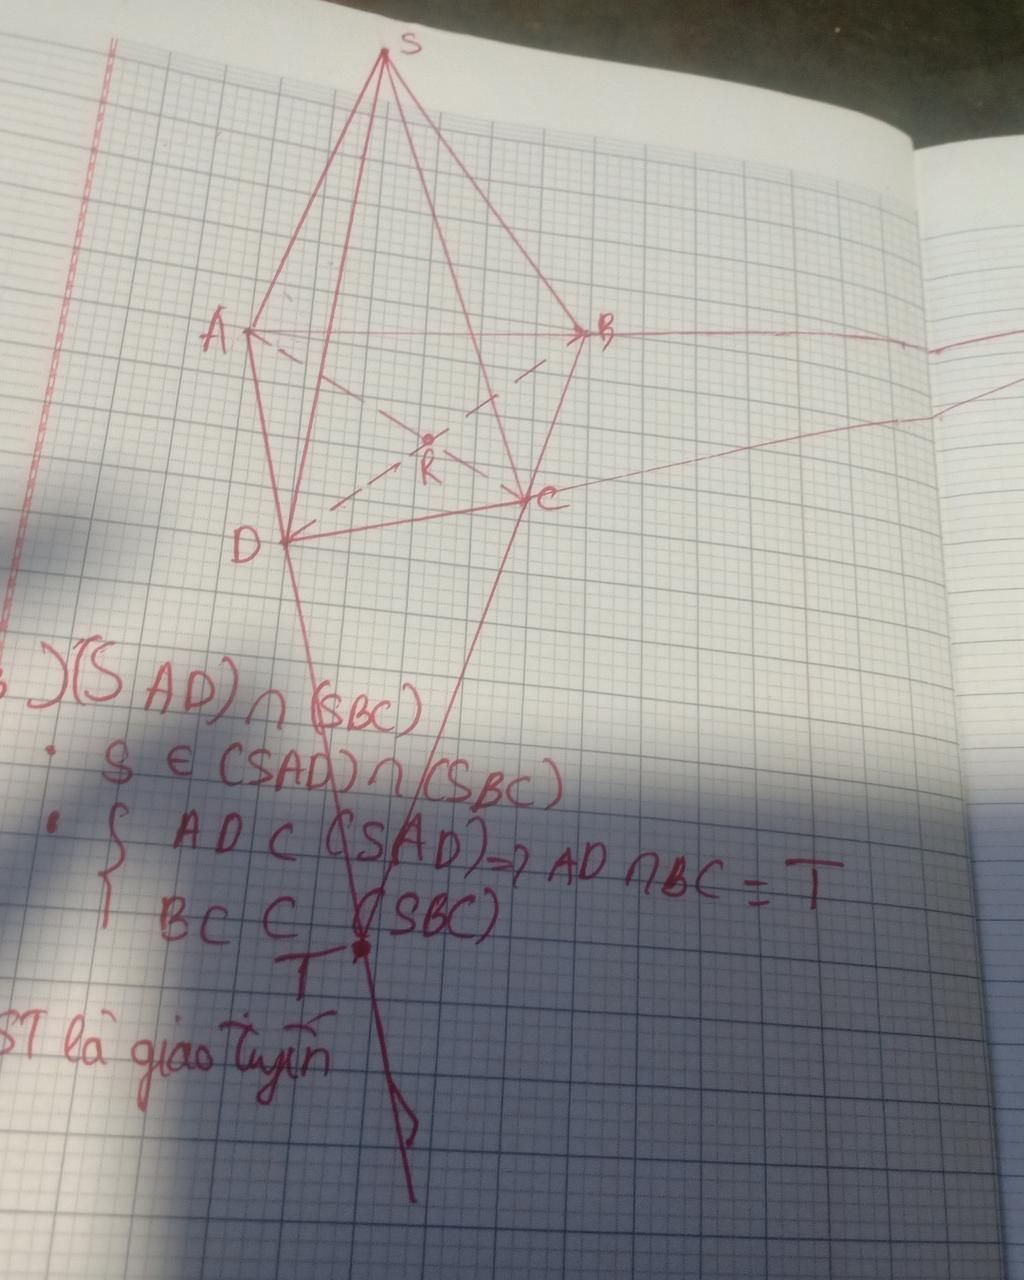 S
A
B
R
C
D
)(SAD) ∩ (SBC)
• S ∈ (SAD) ∩ (SBC)
• { AD ⊂ (SAD) => AD ∩ BC = T
BC ⊂ (SBC)
T
ST là giao tuyến